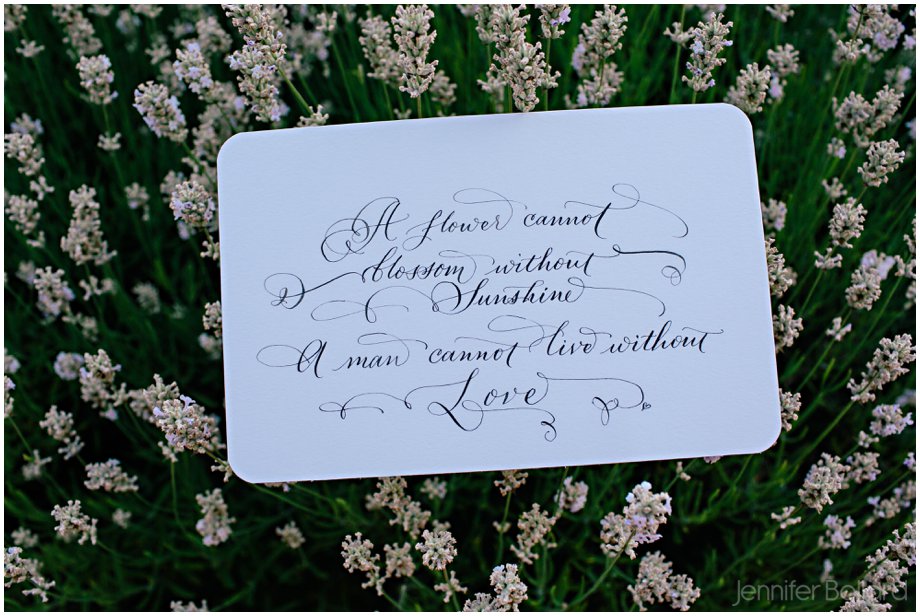 A flower cannot
blossom without
Sunshine
A man cannot live without
Love
Jennifer Bollard